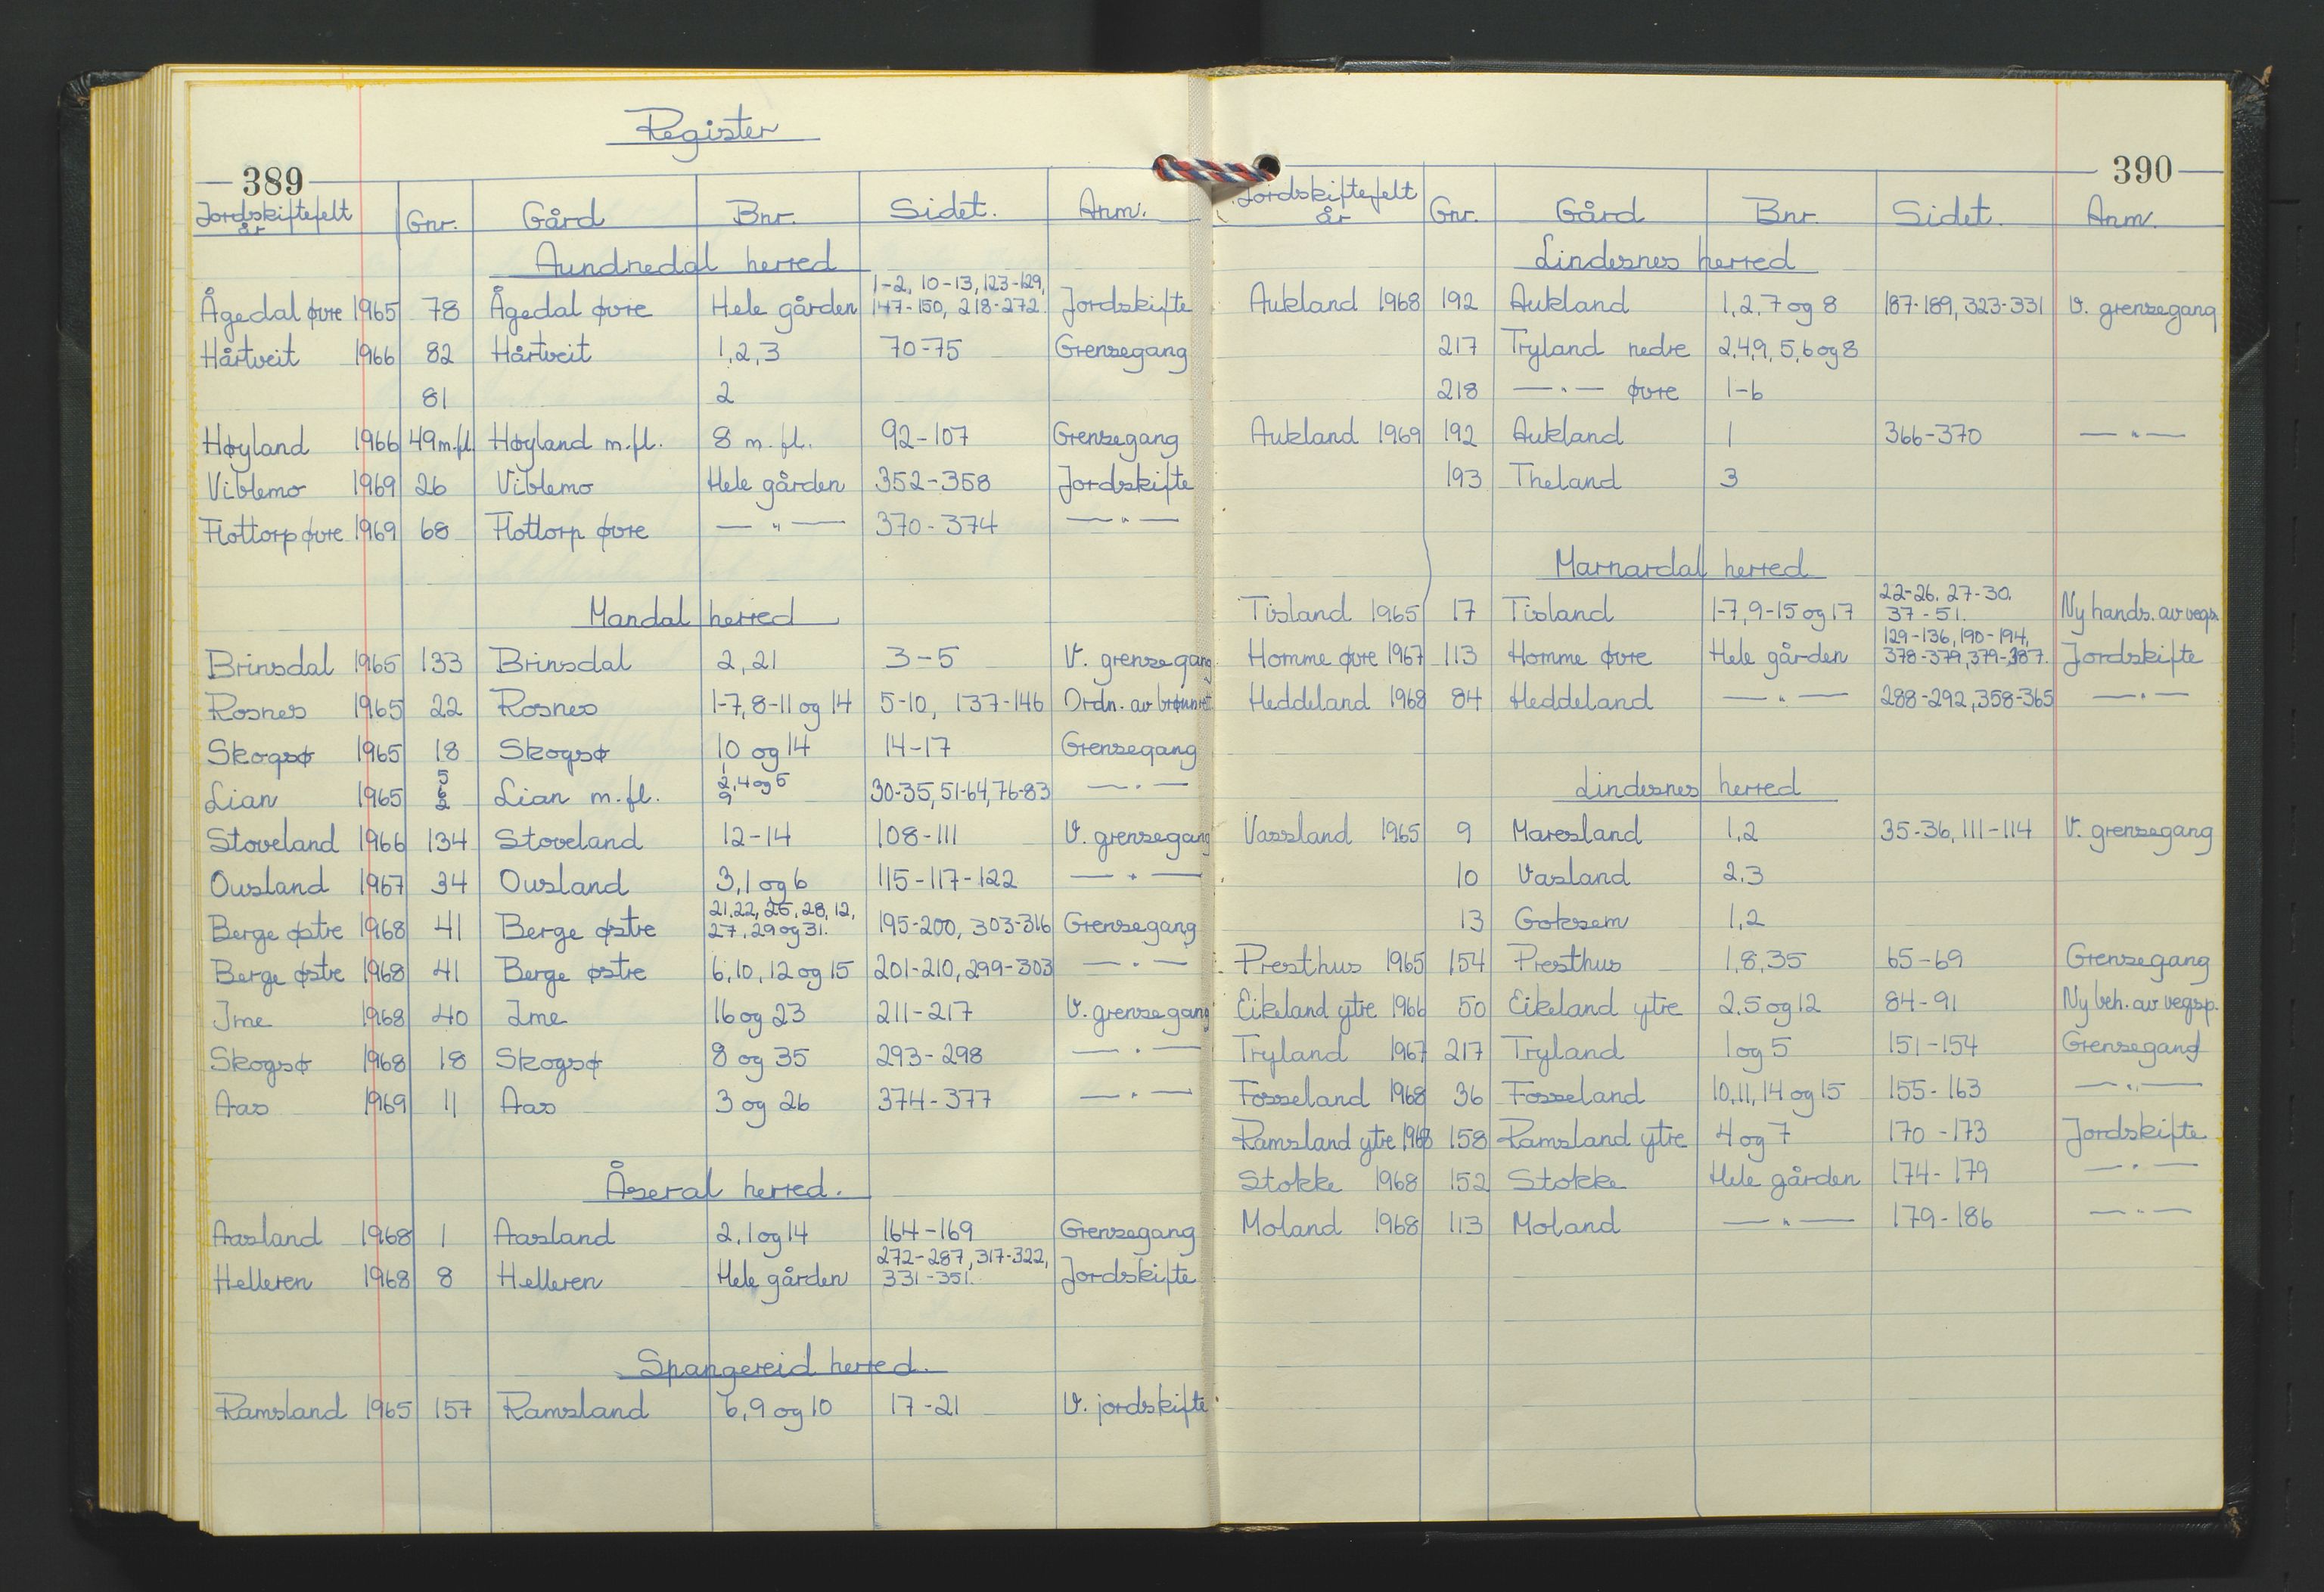 Register
389
Jordskiftefelt år Gnr. Gård Bnr. Sidet. Anm.
Aundnedal herred
1-2, 10-13, 123-129,
Ågedal øvre 1965 78 Ågedal øvre Hele gården 147-150, 218-272. Jordskifte
Hårtveit 1966 82 Hårtveit 1,2,3 70-75 Grensegang
81 2
Høyland 1966 49 m.fl. Høyland m.fl. 8 m.fl. 92-107 Grensegang
Viblemo 1969 26 Viblemo Hele gården 352-358 Jordskifte
Flottorp øvre 1969 68 Flottorp øvre —"— 370-374 —"—
Mandal herred
Brinsdal 1965 133 Brinsdal 2,21 3-5 V. grensegang
Rosnes 1965 22 Rosnes 1-7, 8-11 og 14 5-10, 137-146 Ordn. av brønnrett
Skogsø 1965 18 Skogsø 10 og 14 14-17 Grensegang
5 1
Lian 1965 6 Lian m.fl. 2,4 og 5 30-35, 51-64, 76-83 —"—
2 9
Stoveland 1966 134 Stoveland 12-14 108-111 V. grensegang
Ousland 1967 34 Ousland 3,1 og 6 115-117-122 —"—
21,22,25,28,12,
Berge østre 1968 41 Berge østre 27,29 og 31. 195-200, 303-316 Grensegang
Berge østre 1968 41 Berge østre 6,10,12 og 15 201-210, 299-303 —"—
Ime 1968 40 Ime 16 og 23 211-217 V. grensegang
Skogsø 1968 18 Skogsø 8 og 35 293-298 —"—
Aas 1969 11 Aas 3 og 26 374-377 —"—
Åseral herred.
Aasland 1968 1 Aasland 2,1 og 14 164-169 Grensegang
272-287, 317-322,
Helleren 1968 8 Helleren Hele gården 331-351. Jordskifte
Spangereid herred.
Ramsland 1965 157 Ramsland 6,9 og 10 17-21 V. jordskifte
390
Jordskiftefelt år Gnr. Gård Bnr. Sidet. Anm.
Lindesnes herred
Aukland 1968 192 Aukland 1,2,7 og 8 187-189, 323-331 V. grensegang
217 Tryland nedre 2,4,9, 5,6 og 8
218 —"— øvre 1-6
Aukland 1969 192 Aukland 1 366-370 —"—
193 Theland 3
Marnardal herred
22-26. 27-30.
Tisland 1965 17 Tisland 1-7, 9-15 og 17 37-51. Ny hands. av vegs.
129-136, 190-194,
Homme øvre 1967 113 Homme øvre Hele gården 378-379, 379-387. Jordskifte
Heddeland 1968 84 Heddeland —"— 288-292, 358-365 —"—
Lindesnes herred
Vassland 1965 9 Maresland 1,2 35-36, 111-114 V. grensegang
10 Vasland 2,3
13 Goksem 1,2
Presthus 1965 154 Presthus 1,8,35 65-69 Grensegang
Eikeland ytre 1966 50 Eikeland ytre 2,5 og 12 84-91 Ny beh. av vegsp.
Tryland 1967 217 Tryland 1 og 5 151-154 Grensegang
Fosseland 1968 36 Fosseland 10,11,14 og 15 155-163 —"—
Ramsland ytre 1968 158 Ramsland ytre 4 og 7 170-173 Jordskifte
Stokke 1968 152 Stokke Hele gården 174-179 —"—
Moland 1968 113 Moland —"— 179-186 —"—